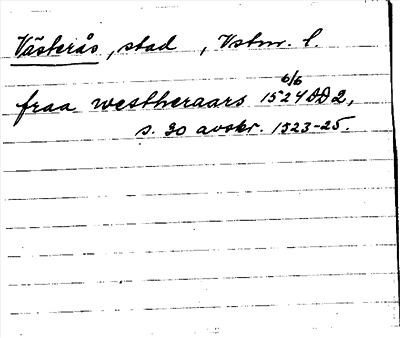 Västerås, stad, Vstm. l.
fraa westheraars 6/6 1524 DD2,
s. 30 avskr. 1523-25.